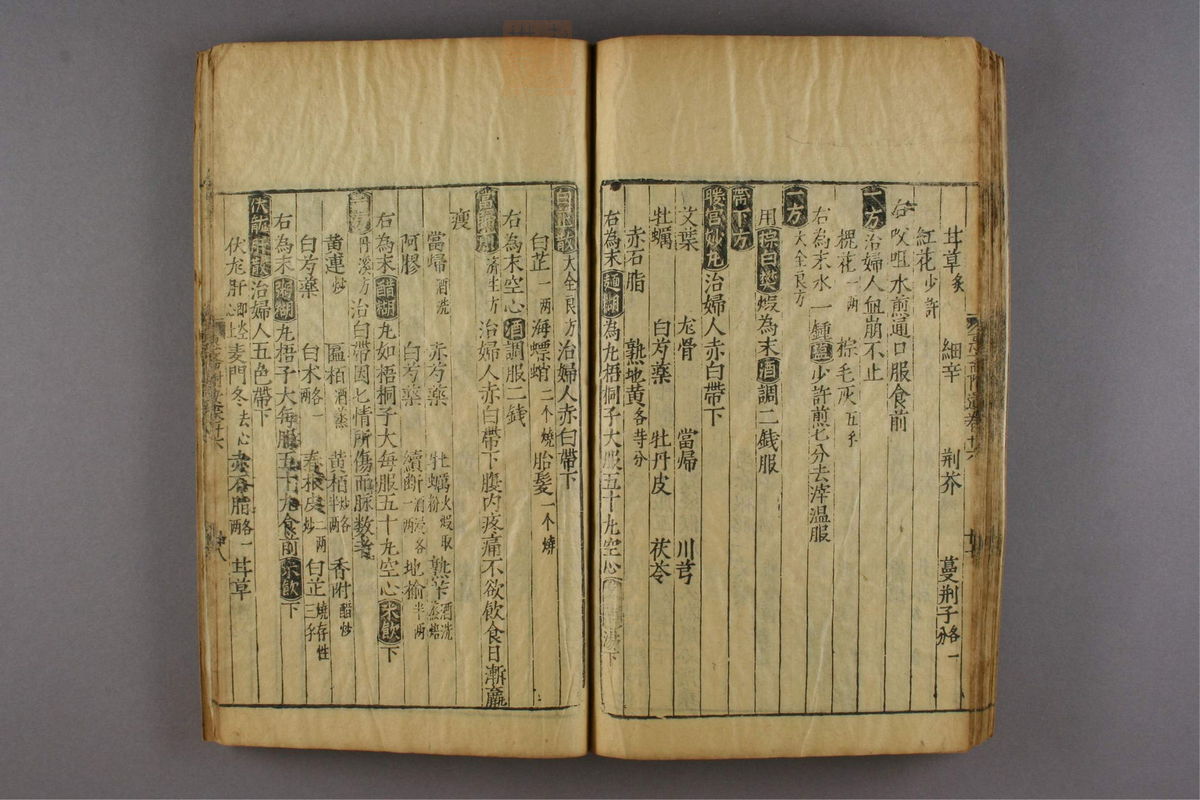 甘草炙 細辛 荆芥 蔓荆子各一分
紅花少許
右㕮咀水煎通口服食前
一方治婦人血崩不止
槐花一兩 棕毛灰五乎
右為末水一鍾鹽少許煎七分去滓温服
一方大全良方
用棕白礬煅為末酒調二錢服
帶下方
暖宫妙丸治婦人赤白帶下
艾葉 龙骨 當帰 川芎
牡蠣 白芍薬 牡丹皮 茯苓
赤石脂 熟地黄各等分
右為末麺糊為丸梧桐子大服五十丸空心湯下
白芷散大全良方治婦人赤白帶下
白芷一兩 海螵蛸二个燒 胎髮一个燒
右為末空心酒調服二錢
當歸煎濟生方治婦人赤白帶下腹内疼痛不欲飲食日漸羸
瘦
當帰酒洗 赤芍薬 牡蠣火煅取粉 熟芐酒洗蒸焙
阿膠 白芍薬 續断酒浸各一兩 地榆半兩
右為末醋糊丸如梧桐子大每服五十丸空心米飲下
一方丹溪方治白帶因七情所傷而脉数者
黄連炒 匾栢酒蒸 黄栢炒各半兩 香附醋炒
白芍薬 白术各一兩 春根皮二兩炒 白芷燒存性三乎
右為末粥糊丸梧子大每服五十丸食前米飲下
伏龍肝散治婦人五色帶下
伏龙肝即灶心上 麦門冬去心 赤石脂各一兩 甘草